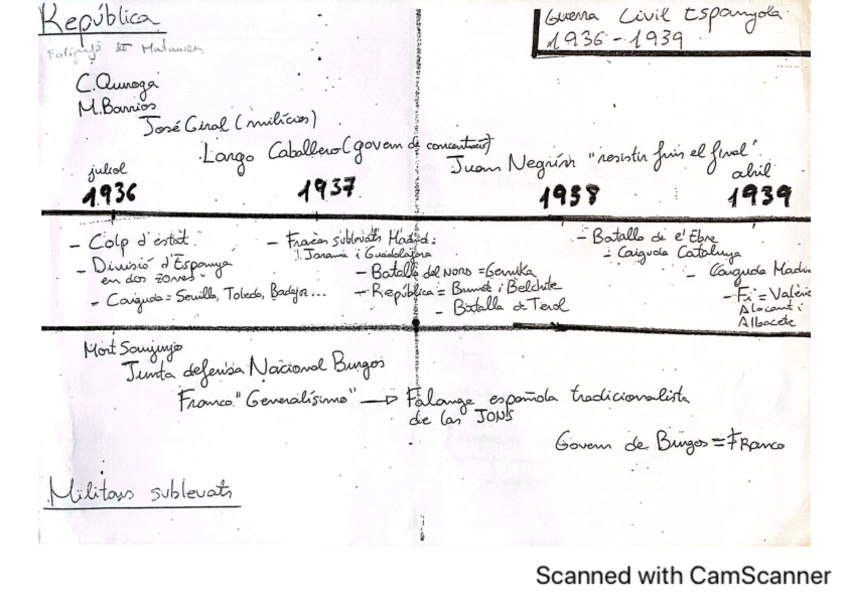 República
Guerra Civil Espanyola
1936-1939
C. Quiroga
M. Barrios
José Giral (milícies)
Largo Caballero (govern de concentració)
Juan Negrín "resistir fins el final"
juliol
abril
1936
1937
1938
1939
- Colp d'estat.
- Divisió d'Espanya
en dos zones.
- Caiguda = Sevilla, Toledo, Badajoz...
- Fracàs sublevats Madrid:
Jarama i Guadalajara
- Batalla del Nord = Gernika
- República = Brunete i Belchite
- Batalla de Terol
- Batalla de l'Ebre
- Caiguda Catalunya
- Caiguda Madri
- Fi = València
Alacant i
Albacete
Mort Sanjurjo
Junta defensa Nacional Burgos
Franco "Generalísimo" → Falange española tradicionalista
de las JONS
Govern de Burgos = Franco
Militars sublevats
Scanned with CamScanner